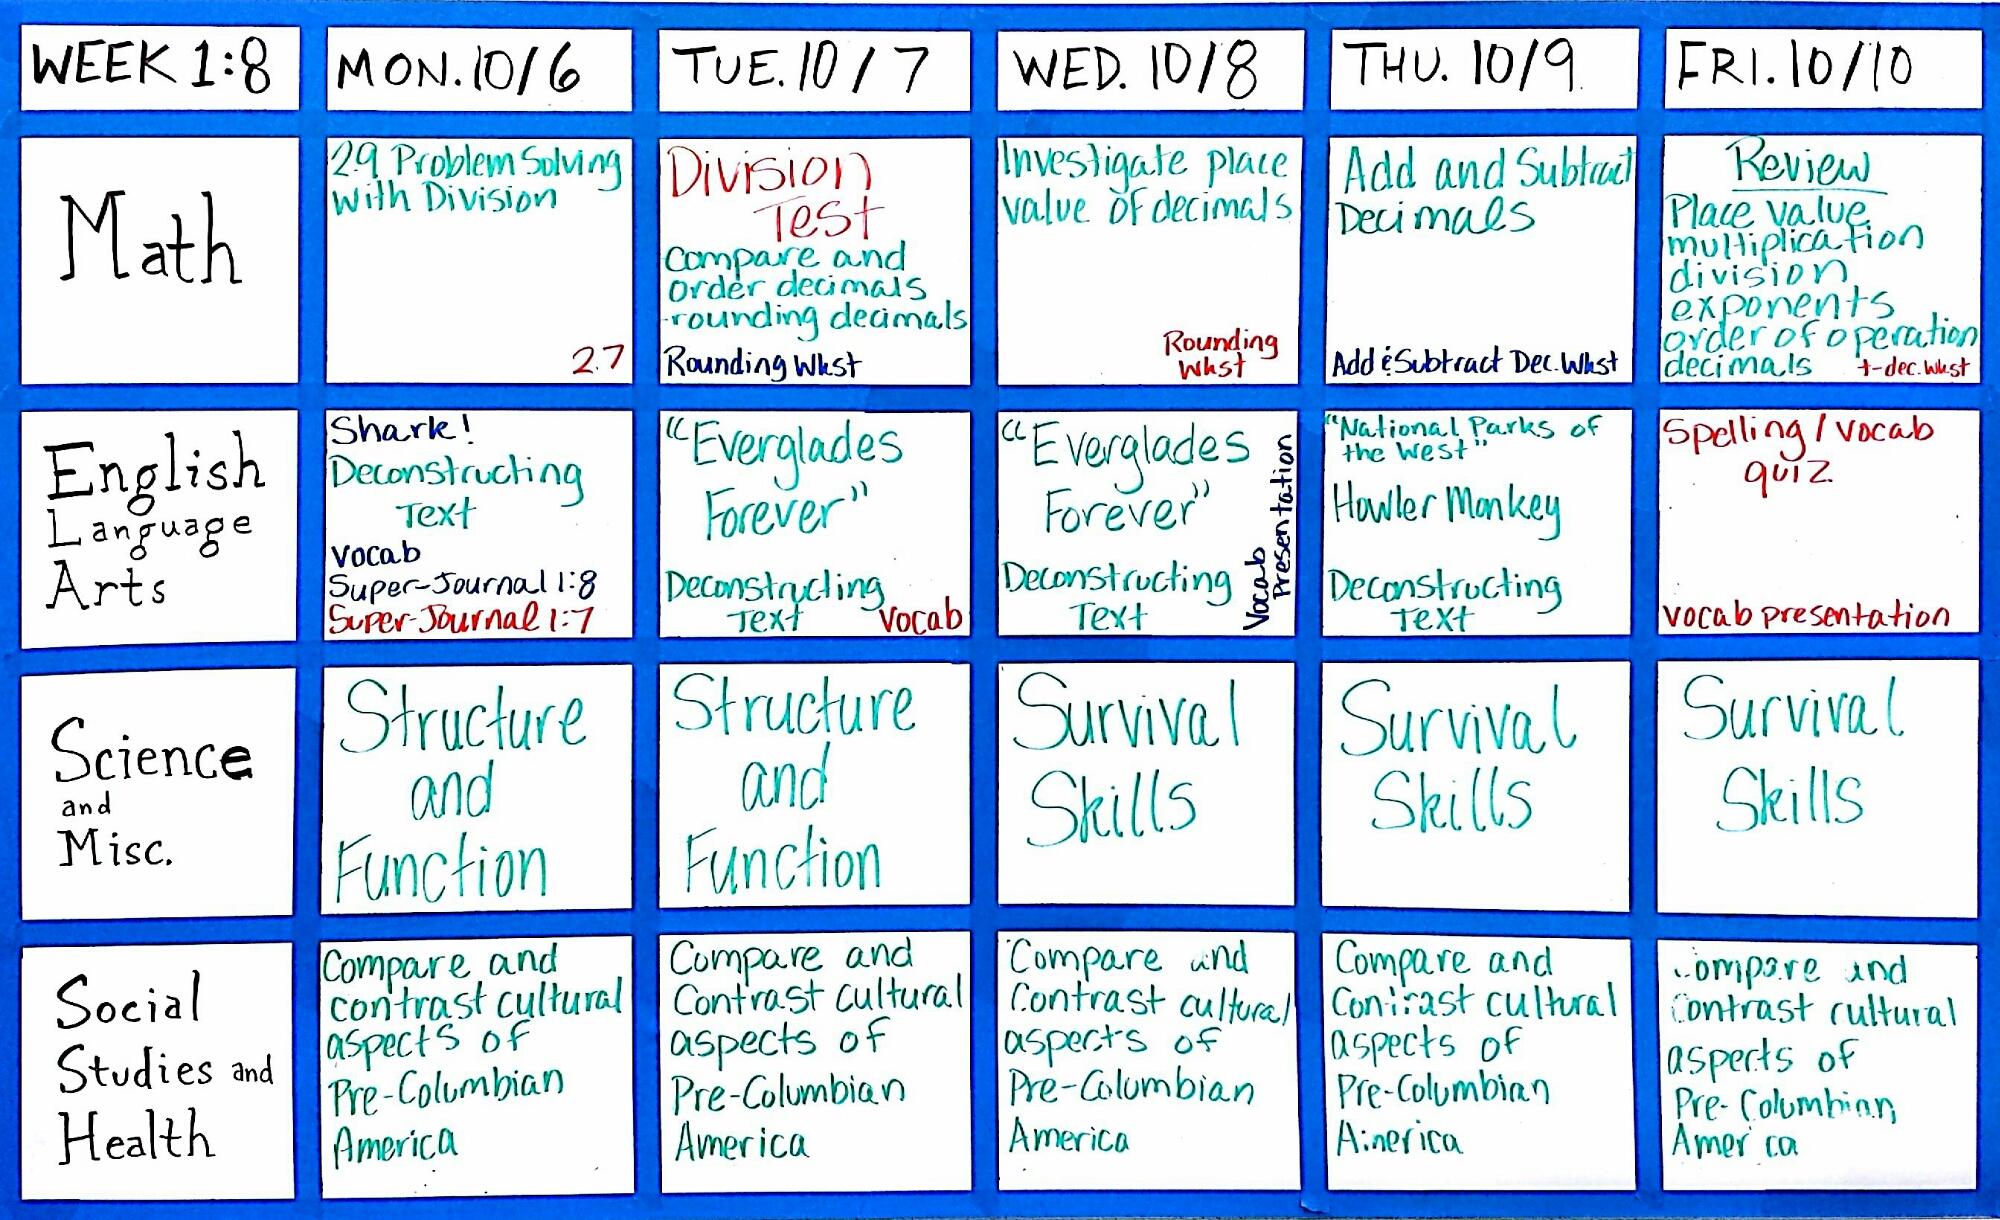 WEEK 1:8
MON. 10/6
TUE. 10/7
WED. 10/8
THU. 10/9
FRI. 10/10
Math
2.9 Problem Solving
With Division
2.7
Division
Test
Compare and
order decimals
-rounding decimals
Rounding Wkst
Investigate place
value of decimals
Rounding
Wkst
Add and Subtract
Decimals
Add & Subtract Dec. Wkst
Review
Place value
multiplication
division
exponents
order of operation
decimals +-dec. Wkst
English
Language
Arts
Shark!
Deconstructing
Text
Vocab
Super-Journal 1:8
Super-Journal 1:7
"Everglades
Forever"
Deconstructing
Text Vocab
"Everglades
Forever"
Deconstructing
Text
Vocab
Presentation
"National Parks of
the West"
Howler Monkey
Deconstructing
Text
Spelling/Vocab
quiz
Vocab presentation
Science
and
Misc.
Structure
and
Function
Structure
and
Function
Survival
Skills
Survival
Skills
Survival
Skills
Social
Studies and
Health
Compare and
contrast cultural
aspects of
Pre-Columbian
America
Compare and
Contrast cultural
aspects of
Pre-Columbian
America
Compare and
Contrast cultural
aspects of
Pre-Columbian
America
Compare and
Contrast cultural
aspects of
Pre-Columbian
America
Compare and
Contrast cultural
aspects of
Pre-Columbian
America